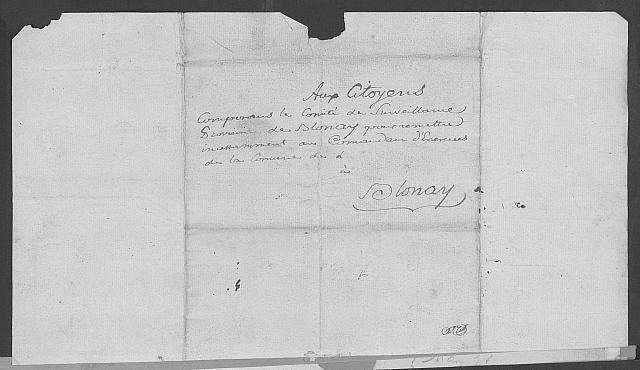 Aux Citoyens
Composans le Comité de Surveillance
de Blonay pour remettre
incessemment au Comandan d'Exercices
de la Comune de
à
Blonay